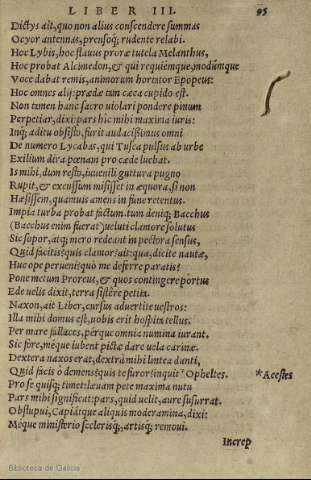 LIBER III. 95
Dictys ait, quo non alius conscendere summas
Ocyor antennas, prensoq; rudente relabi.
Hoc Lybis, hoc flauus proræ tutela Melanthus,
Hoc probat Alcimedon, & qui requiemque, modumque
Voce dabat remis, animorum hortator Epopeus:
Hoc omnes alij: prædæ tam cæca cupido est.
Non tamen hanc sacro uiolari pondere pinum
Perpetiar, dixi: pars hic mihi maxima iuris:
Inq; aditu obsisto, furit audacissimus omni
De numero Lycabas, qui Tusca pulsus ab urbe
Exilium dira pœnam pro cæde luebat.
Is mihi, dum resto, iuuenili guttura pugno
Rupit, & excussum misisset in æquora, si non
Hæsissem, quamuis amens in fune retentus.
Impia turba probat factum. tum deniq; Bacchus
(Bacchus enim fuerat) ueluti clamore solutus
Sic sopor, atq; mero redeant in pectora sensus,
Quid facitis? quis clamor? ait: qua, dicite nautæ,
Huc ope perueni? quò me deferre paratis?
Pone metum Proreus, & quos contingere portus
Ede uelis dixit, terra sistêre petita.
Naxon, ait Liber, cursus aduertite uestros:
Illa mihi domus est, uobis erit hospita tellus.
Per mare fallaces, pérque omnia numina iurant.
Sic fore, méque iubent pictæ dare uela carinæ.
Dextera naxos erat, dextrà mihi lintea danti,
Quid facis ô demens? quis te furor? inquit* Opheltes. *Acestes
Pro se quisq; timet: læuam pete maxima nutu
Pars mihi significat: pars, quid uelit, aure susurrat.
Obstupui, Capiátque aliquis moderamina, dixi:
Méque ministerio scelerisq;, artisq; remoui.
Increp
Biblioteca de Galicia